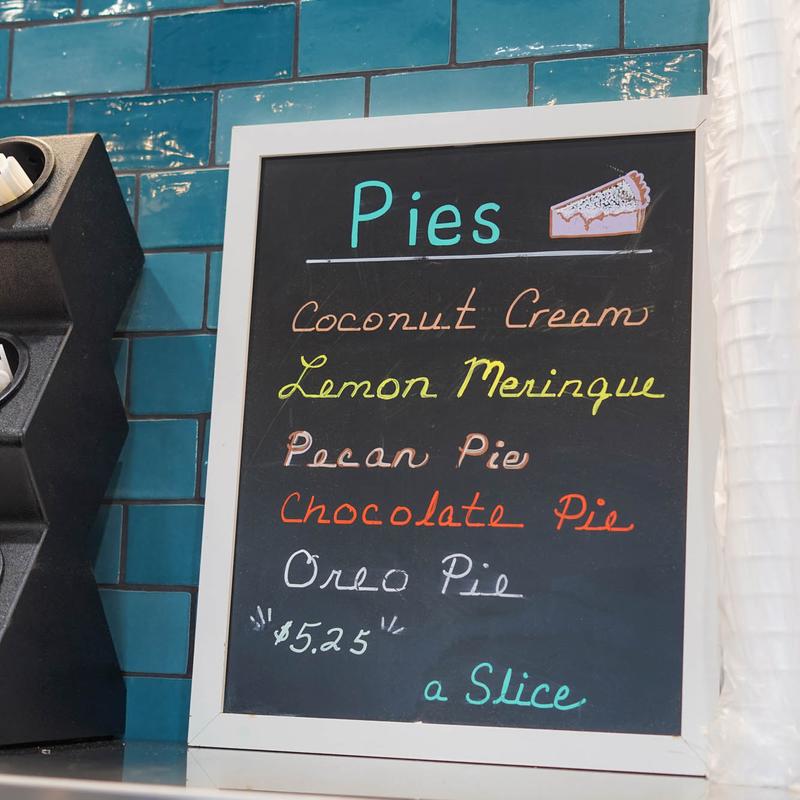 Pies
Coconut Cream
Lemon Meringue
Pecan Pie
Chocolate Pie
Oreo Pie
$5.25
a Slice